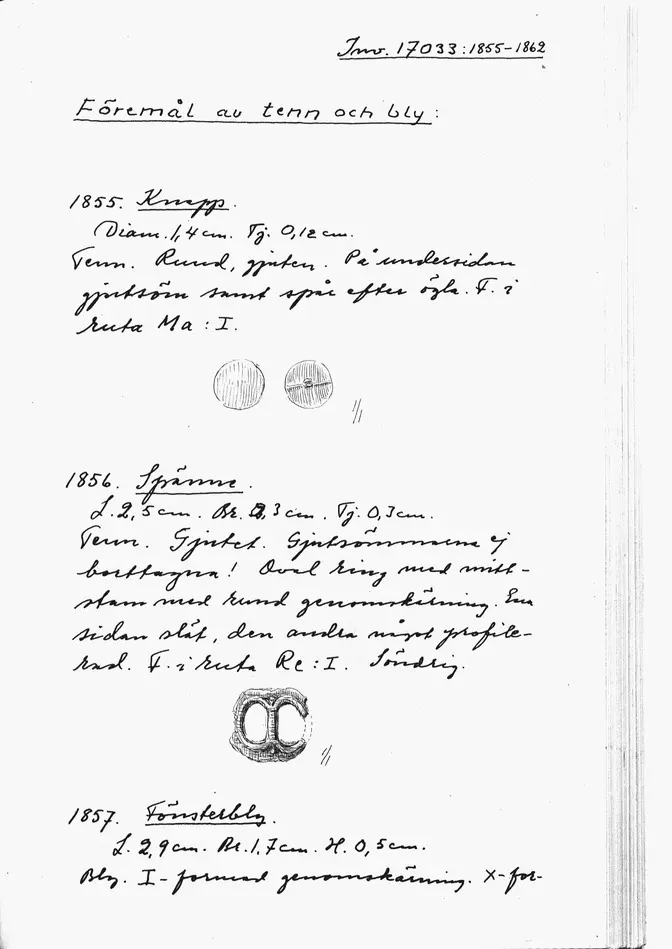 Inv. 17033:1855-1862
Föremål av tenn och bly:
1855. Knapp.
Diam. 1,4 cm. Tj. 0,12 cm.
Tenn. Rund, gjuten. På undersidan
gjutsöm samt spår efter ögla. F. i
ruta Ma : I.
1/1
1856. Spänne.
L. 2,5 cm. Br. 2,3 cm. Tj. 0,3 cm.
Tenn. Gjutet. Gjutsömmarna ej
borttagna! Oval ring med mitt-
stam med rund genomskärning. Ena
sidan slät, den andra något profile-
rad. F. i ruta Re : I. Söndrig.
1/1
1857. Fönsterbly.
L. 2,9 cm. Br. 1,7 cm. H. 0,5 cm.
Bly. I-formad genomskärning. X-for-